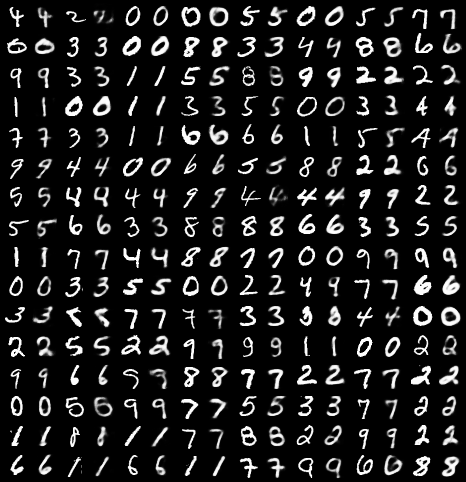 4 4 2 0 0 0 0 5 5 0 0 5 5 7 7
6 0 3 3 0 0 8 8 3 3 4 4 8 8 6 6
9 9 3 3 1 1 5 5 8 8 9 9 2 2 2 2
1 1 0 0 1 1 3 3 5 5 0 0 3 3 4 4
7 7 3 3 1 1 6 6 6 6 1 1 5 5 4 4
9 9 4 4 0 0 6 6 5 5 8 8 2 2 6 6
5 5 4 4 4 4 9 9 4 4 4 9 9 2 2
5 5 6 6 3 3 8 8 8 8 6 6 3 3 5 5
1 1 7 7 4 4 8 8 7 7 0 0 9 9 9 9
0 0 3 3 5 5 0 0 2 2 4 9 7 7 6 6
3 3 8 8 7 7 7 7 3 3 3 8 4 4 0 0
2 2 5 5 2 2 9 9 9 9 1 1 0 0 2 2
9 9 6 6 5 9 8 8 7 7 2 2 7 7 2 2
0 0 5 6 9 9 7 7 5 5 3 3 7 7 2 2
1 1 8 8 1 1 7 7 8 8 2 2 9 9 2 2
6 6 1 1 6 6 1 1 7 7 9 9 6 0 8 8